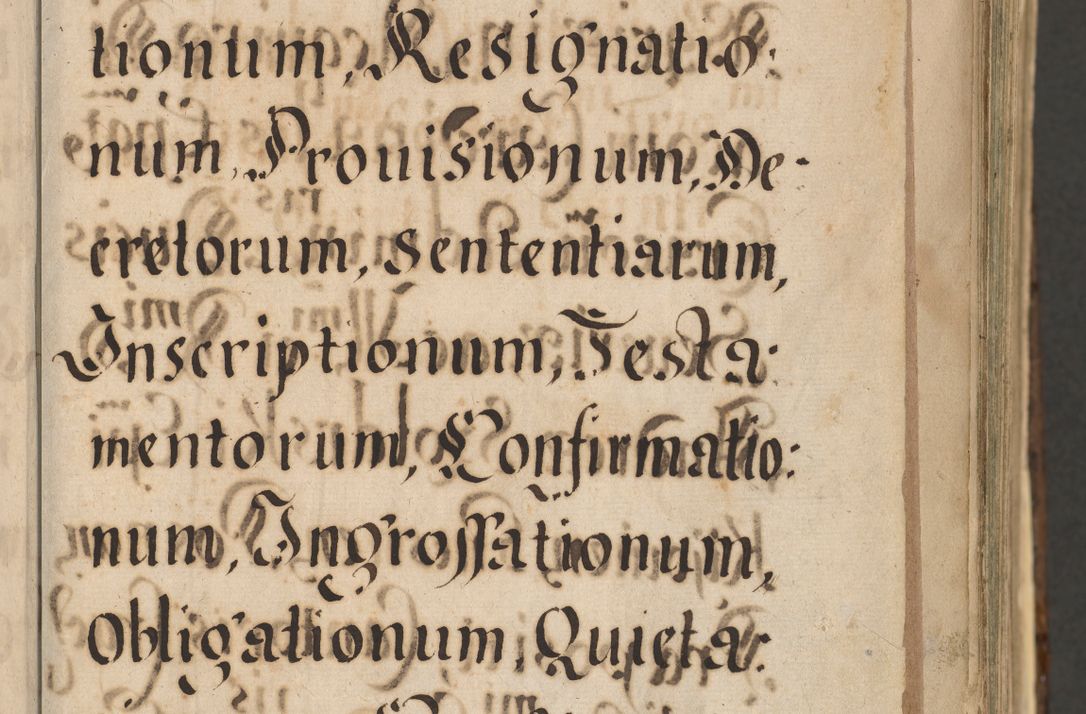 tionum, Resignatio:
num, Prouisionum, De-
cretorum, Sententiarum,
Inscriptionum, Testa:
mentorum, Confirmatio:
num, Ingrossationum,
Obligationum, Quieta: